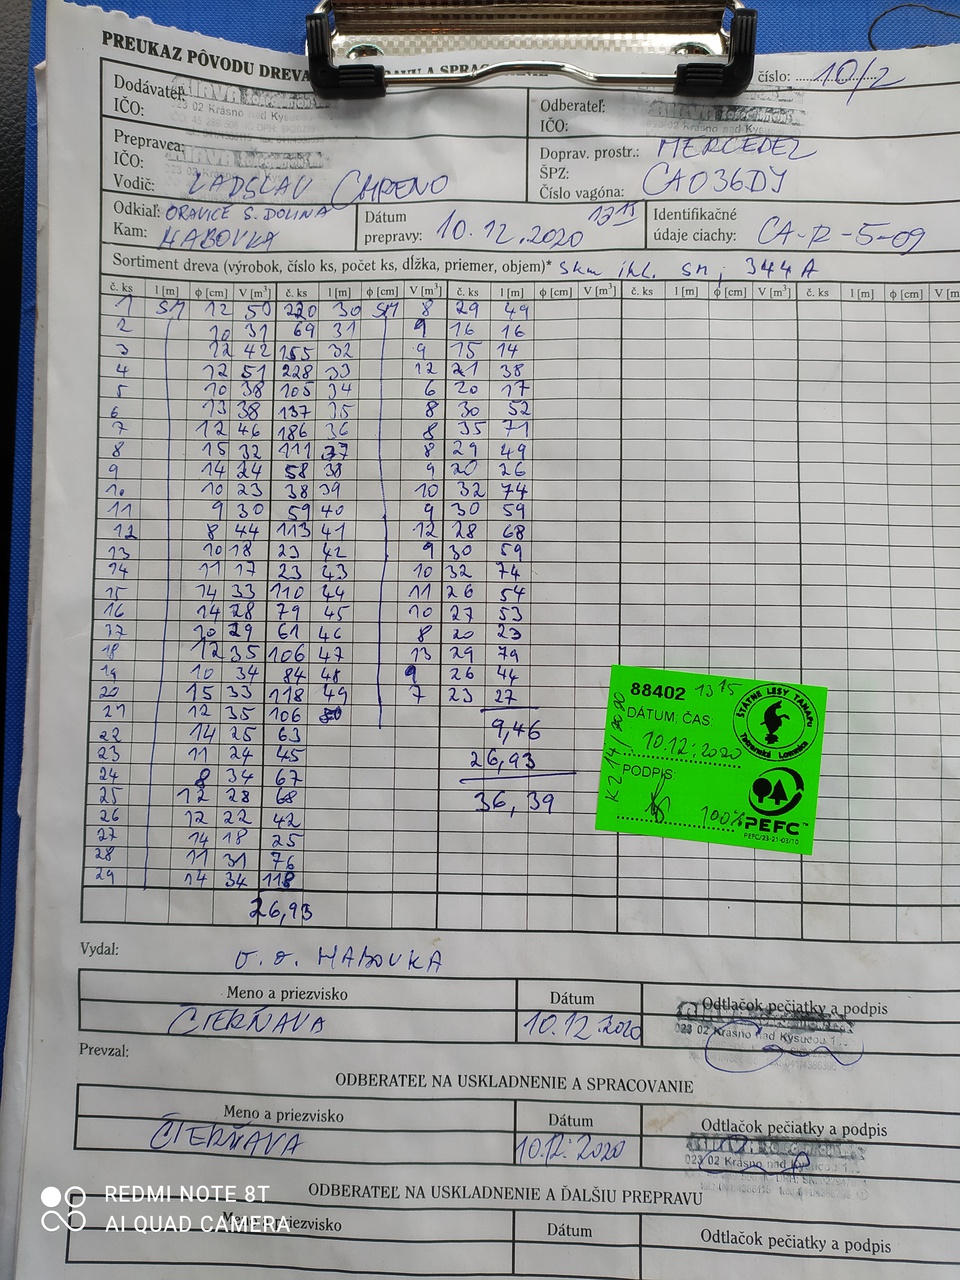 PREUKAZ PÔVODU DREVA
číslo: 10/2
Dodávateľ:
IČO:
023 02 Krásno nad Kysucou
Odberateľ:
IČO:
023 02 Krásno nad Kysucou
Prepravca:
IČO:
Vodič: LADISLAV CHRENO
Doprav. prostr.: MERCEDEZ
ŠPZ:
Číslo vagóna: CA036DY
Odkiaľ: ORAVICE S. DOLINA
Kam: HABOVKA
Dátum
prepravy: 10.12.2020 13 15
Identifikačné
údaje ciachy: CA-R-5-09
Sortiment dreva (výrobok, číslo ks, počet ks, dĺžka, priemer, objem)* ihl. sm, 344A
č. ks l [m] ϕ [cm] V [m³] č. ks l [m] ϕ [cm] V [m³] č. ks l [m] ϕ [cm] V [m³] č. ks l [m] ϕ [cm] V [m³] č. ks l [m] ϕ [cm] V [m
1 SM 12 50 220 30 SM 8 29 49
2 10 31 69 31 9 16 16
3 12 42 155 32 9 15 14
4 12 51 228 33 12 21 38
5 10 38 105 34 6 20 17
6 13 38 137 35 8 30 52
7 12 46 186 36 8 35 71
8 15 32 111 37 8 29 49
9 14 24 58 38 9 20 26
10 10 23 38 39 10 32 74
11 9 30 59 40 9 30 59
12 8 44 113 41 12 28 68
13 10 18 23 42 9 30 59
14 11 17 23 43 10 32 74
15 14 33 110 44 11 26 54
16 14 28 79 45 10 27 53
17 10 29 61 46 8 20 23
18 12 35 106 47 13 29 79
19 10 34 84 48 9 26 44
20 15 33 118 49 7 23 27
21 12 35 106 50
22 14 25 63 9,46
23 11 24 45 26,93
24 8 34 67
25 12 28 68 36,39
26 12 22 42
27 14 18 25
28 11 31 76
29 14 34 118
26,93
88402 13 15
DÁTUM, ČAS:
10.12.2020
PODPIS:
100%
ŠTÁTNE LESY TANAPu
Tatranská Lomnica
PEFC™
PEFC/23-21-03/10
Vydal: O.O. HABOVKA
Meno a priezvisko Dátum Odtlačok pečiatky a podpis
ČIERŇAVA 10.12.2020
023 02 Krásno nad Kysucou
Prevzal:
ODBERATEĽ NA USKLADNENIE A SPRACOVANIE
Meno a priezvisko Dátum Odtlačok pečiatky a podpis
ČIERŇAVA 10.12.2020
023 02 Krásno nad
ODBERATEĽ NA USKLADNENIE A ĎALŠIU PREPRAVU
Meno a priezvisko Dátum Odtlačok pečiatky a podpis
REDMI NOTE 8T
AI QUAD CAMERA